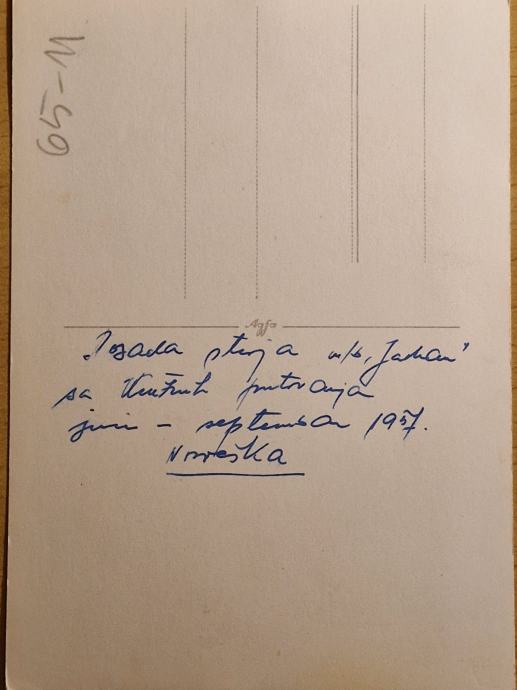 65-11
Agfa
Posada stroja m/b „Jadran"
sa kružnih putovanja
juni - septembar 1957.
Norveška